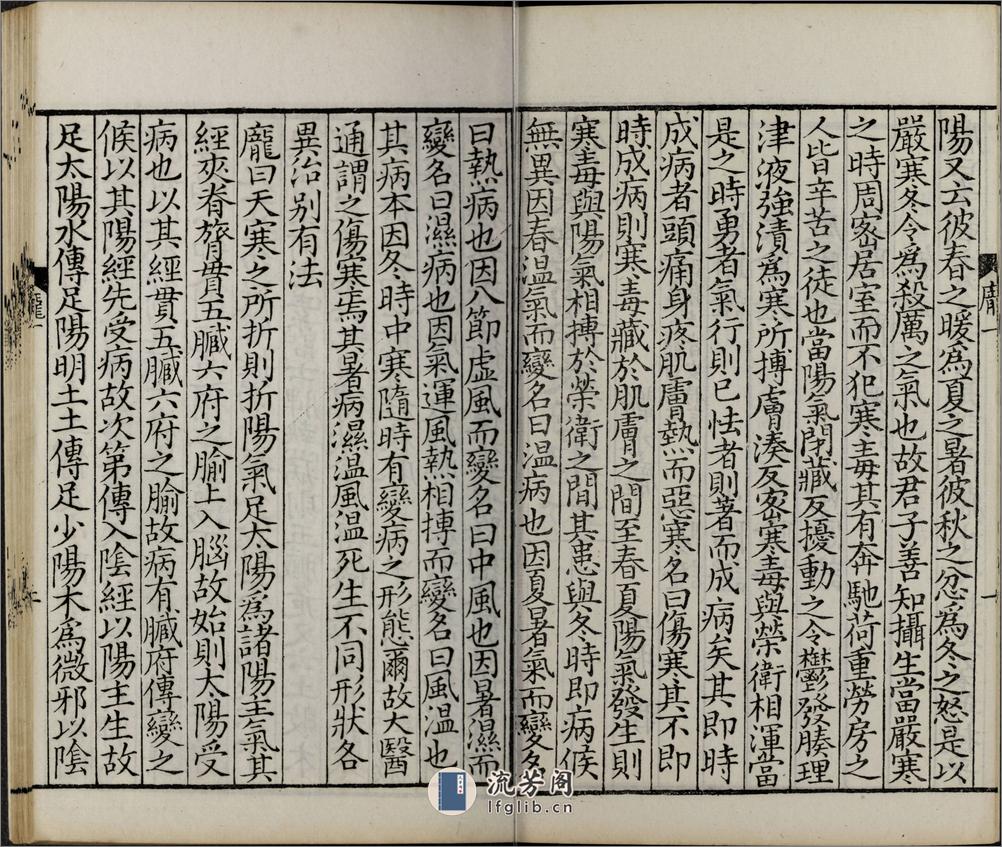 陽又云彼春之暖為夏之暑彼秋之忿為冬之怒是以
嚴寒冬令為殺厲之氣也故君子善知攝生當嚴寒
之時周密居室而不犯寒毒其有奔馳荷重勞房之
人皆辛苦之徒也當陽氣閉藏反擾動之令鬱發腠理
津液強漬為寒所搏膚湊反密寒毒與榮衛相渾當
是之時勇者氣行則已怯者則著而成病矣其即時
成病者頭痛身疼肌膚熱而惡寒名曰傷寒其不即
時成病則寒毒藏於肌膚之間至春夏陽氣發生則
寒毒與陽氣相搏於榮衛之間其患與冬時即病候
無異因春溫氣而變名曰温病也因夏暑氣而變名
曰熱病也因八節虛風而變名曰中風也因暑濕而
變名曰濕病也因氣運風熱相搏而變名曰風温也
其病本因冬時中寒隨時有變病之形態爾故大醫
通謂之傷寒焉其暑病濕温風温死生不同形狀各
異治別有法
龐曰天寒之所折則折陽氣足太陽為諸陽主氣其
經夾脊膂貫五臟六府之腧上入腦故始則太陽受
病也以其經貫五臟六府之腧故病有臟府傳變之
候以其陽經先受病故次第傳入陰經以陽主生故
足太陽水傳足陽明土土傳足少陽木為微邪以陰
龐一
一
龐一
流芳阁
lfglib.cn